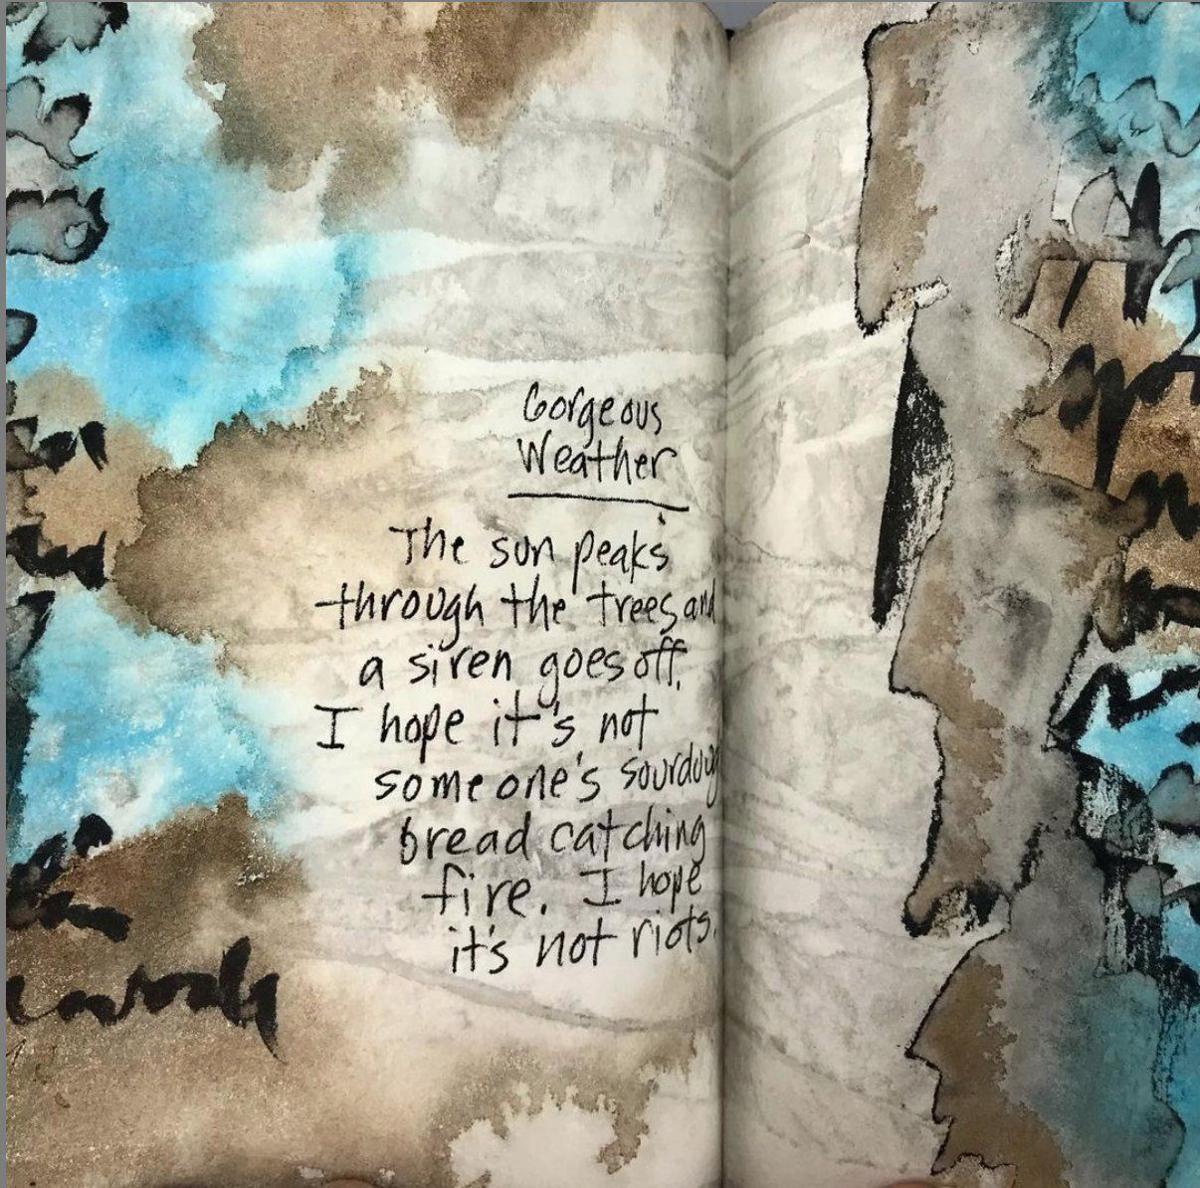 Gorgeous
Weather
The sun peaks
through the trees and
a siren goes off.
I hope it's not
someone's sourdoug
bread catching
fire. I hope
it's not riots.